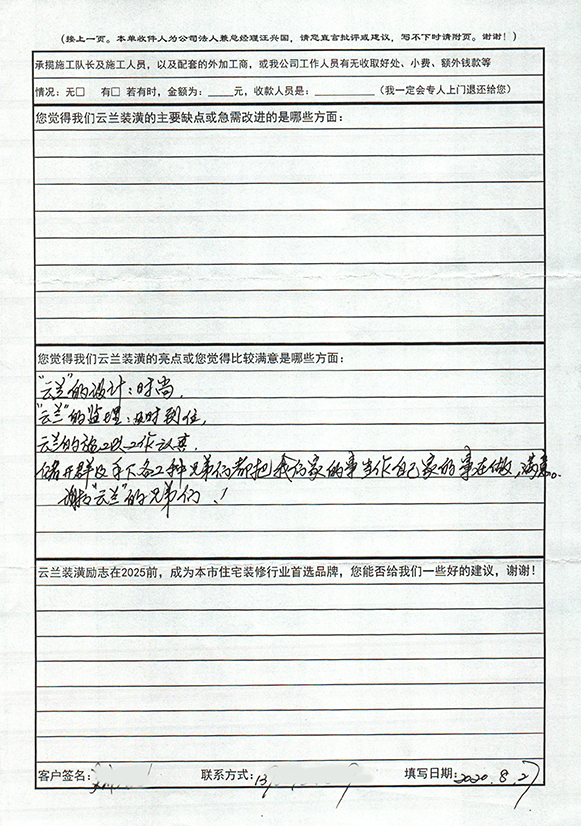 (接上一页。本单收件人为公司法人兼总经理汪兴国，请您直言批评或建议，写不下时请附页。谢谢！)
承揽施工队长及施工人员，以及配套的外加工商，或我公司工作人员有无收取好处、小费、额外钱款等
情况：无□ 有□ 若有时，金额为：____元，收款人是：__________（我一定会专人上门退还给您）
您觉得我们云兰装潢的主要缺点或急需改进的是哪些方面：
您觉得我们云兰装潢的亮点或您觉得比较满意是哪些方面：
"云兰"的设计：时尚，
"云兰"的监理：及时到位，
云兰的施工队工作认真，
储开群及手下各工种兄弟们都把我们家的事当作自己家的事在做，满意。
谢谢"云兰"的兄弟们！
云兰装潢励志在2025前，成为本市住宅装修行业首选品牌，您能否给我们一些好的建议，谢谢！
客户签名： 联系方式：13 填写日期：2020.8.27